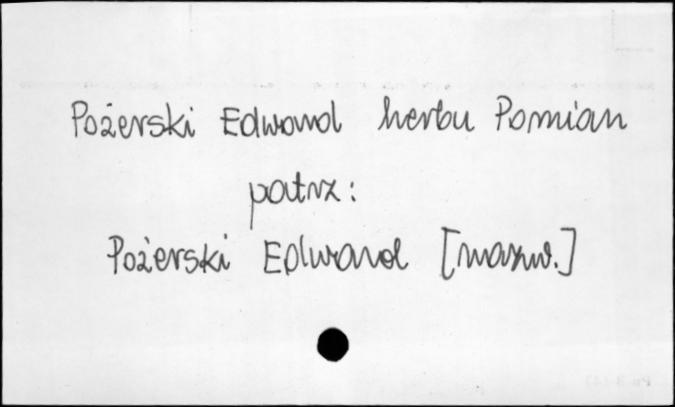 Pożerski Edward herbu Pomian
patrz:
Pożerski Edward [nazw.]